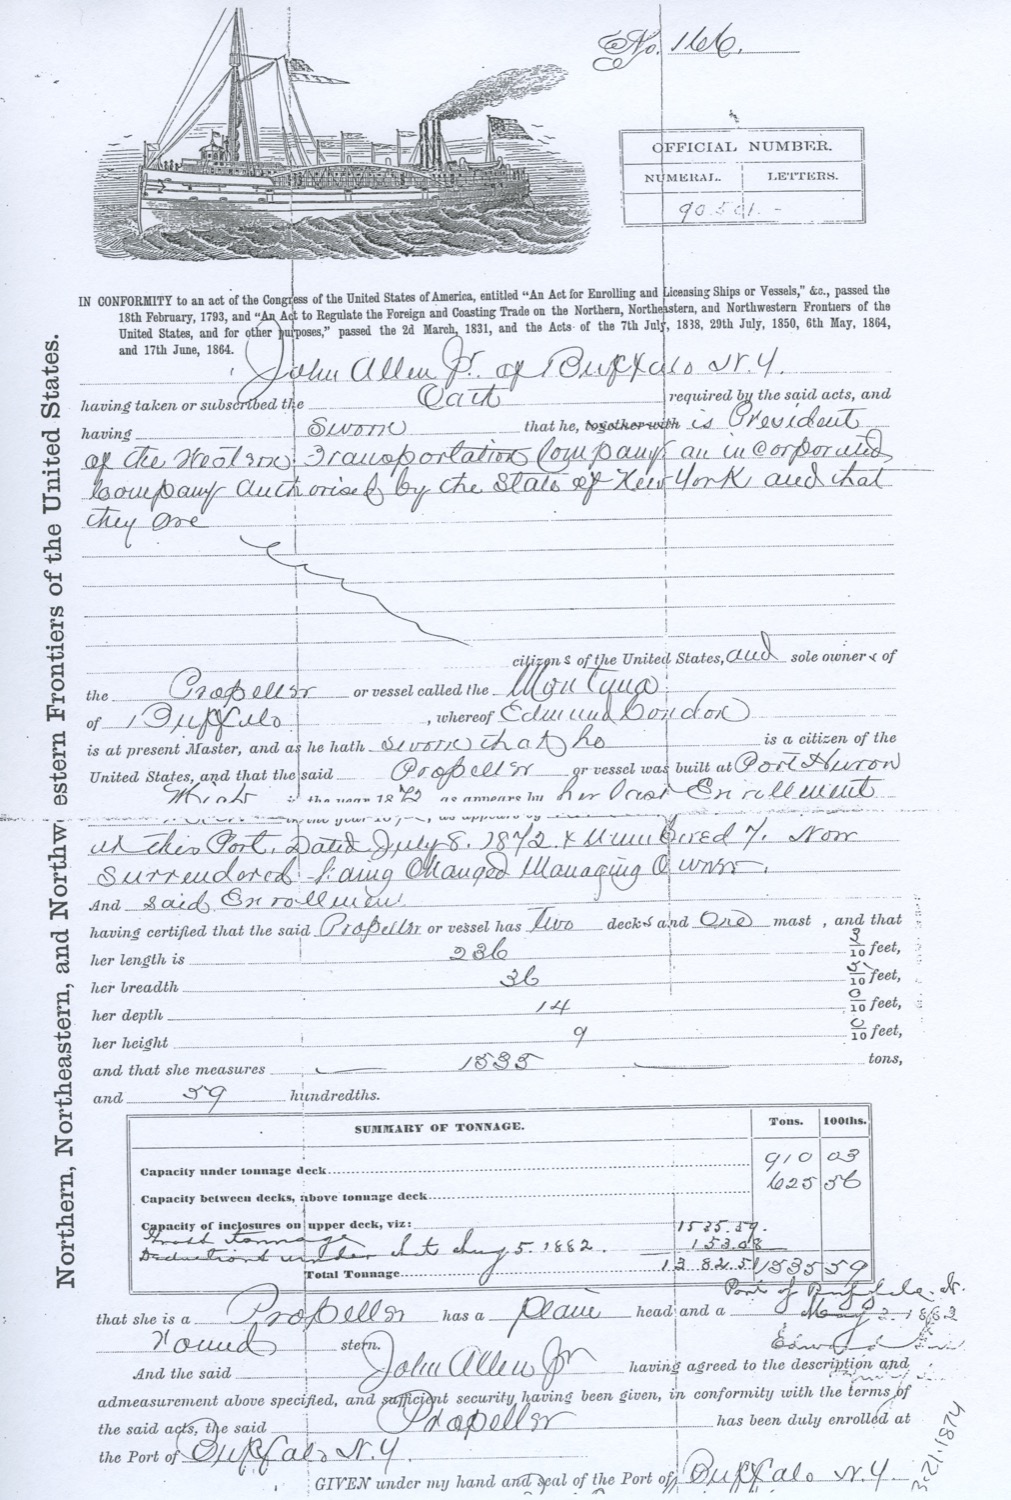 No. 166.
OFFICIAL NUMBER.
NUMERAL. LETTERS.
90.501.-
IN CONFORMITY to an act of the Congress of the United States of America, entitled "An Act for Enrolling and Licensing Ships or Vessels," &c., passed the
18th February, 1793, and "An Act to Regulate the Foreign and Coasting Trade on the Northern, Northeastern, and Northwestern Frontiers of the
United States, and for other purposes," passed the 2d March, 1831, and the Acts of the 7th July, 1838, 29th July, 1850, 6th May, 1864,
and 17th June, 1864.
John Allen Jr. of Buffalo N.Y.
having taken or subscribed the Oath required by the said acts, and
having Sworn that he, together with is President
of the Western Transportation Company an incorporated
Company authorised by the State of New York and that
they are
citizens of the United States, and sole owners of
the Propeller or vessel called the Montana
of Buffalo, whereof Edmund Condon
is at present Master, and as he hath sworn that he is a citizen of the
United States, and that the said Propeller or vessel was built at Port Huron
Mich in the year 1872 as appears by her last Enrollment
at this Port. Dated July 8. 1872 & Numbered 7. Now
Surrendered being Changed Managing Owner.
And said Enrollment
having certified that the said Propeller or vessel has Two decks and One mast, and that
her length is 236 3/10 feet,
her breadth 36 5/10 feet,
her depth 14 0/10 feet,
her height 9 0/10 feet,
and that she measures 1535 tons,
and 59 hundredths.
SUMMARY OF TONNAGE. Tons. 100ths.
Capacity under tonnage deck 910 03
Capacity between decks, above tonnage deck 625 56
Capacity of inclosures on upper deck, viz: 1535.59.
Gross tonnage
Deductions under Act Aug 5. 1882. 153.08
Total Tonnage 1382.51 1535 59
Port of Buffalo. N.
that she is a Propeller has a plain head and a
Round stern.
And the said John Allen Jr having agreed to the description and
admeasurement above specified, and sufficient security having been given, in conformity with the terms of
the said acts, the said Propeller has been duly enrolled at
the Port of Buffalo N.Y.
GIVEN under my hand and seal of the Port of Buffalo N.Y.
3.21.1874
Northern, Northeastern, and Northwestern Frontiers of the United States.